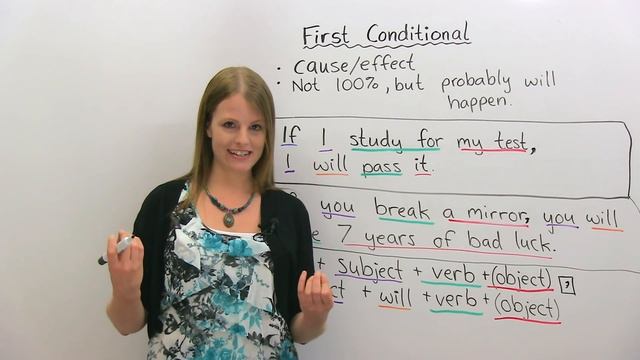 First Conditional
: Cause/effect
: Not 100%, but probably will
happen.
If I study for my test,
I will pass it.
you break a mirror, you will
7 years of bad luck.
+ Subject + verb + (object) ,
+ will + verb + (object)